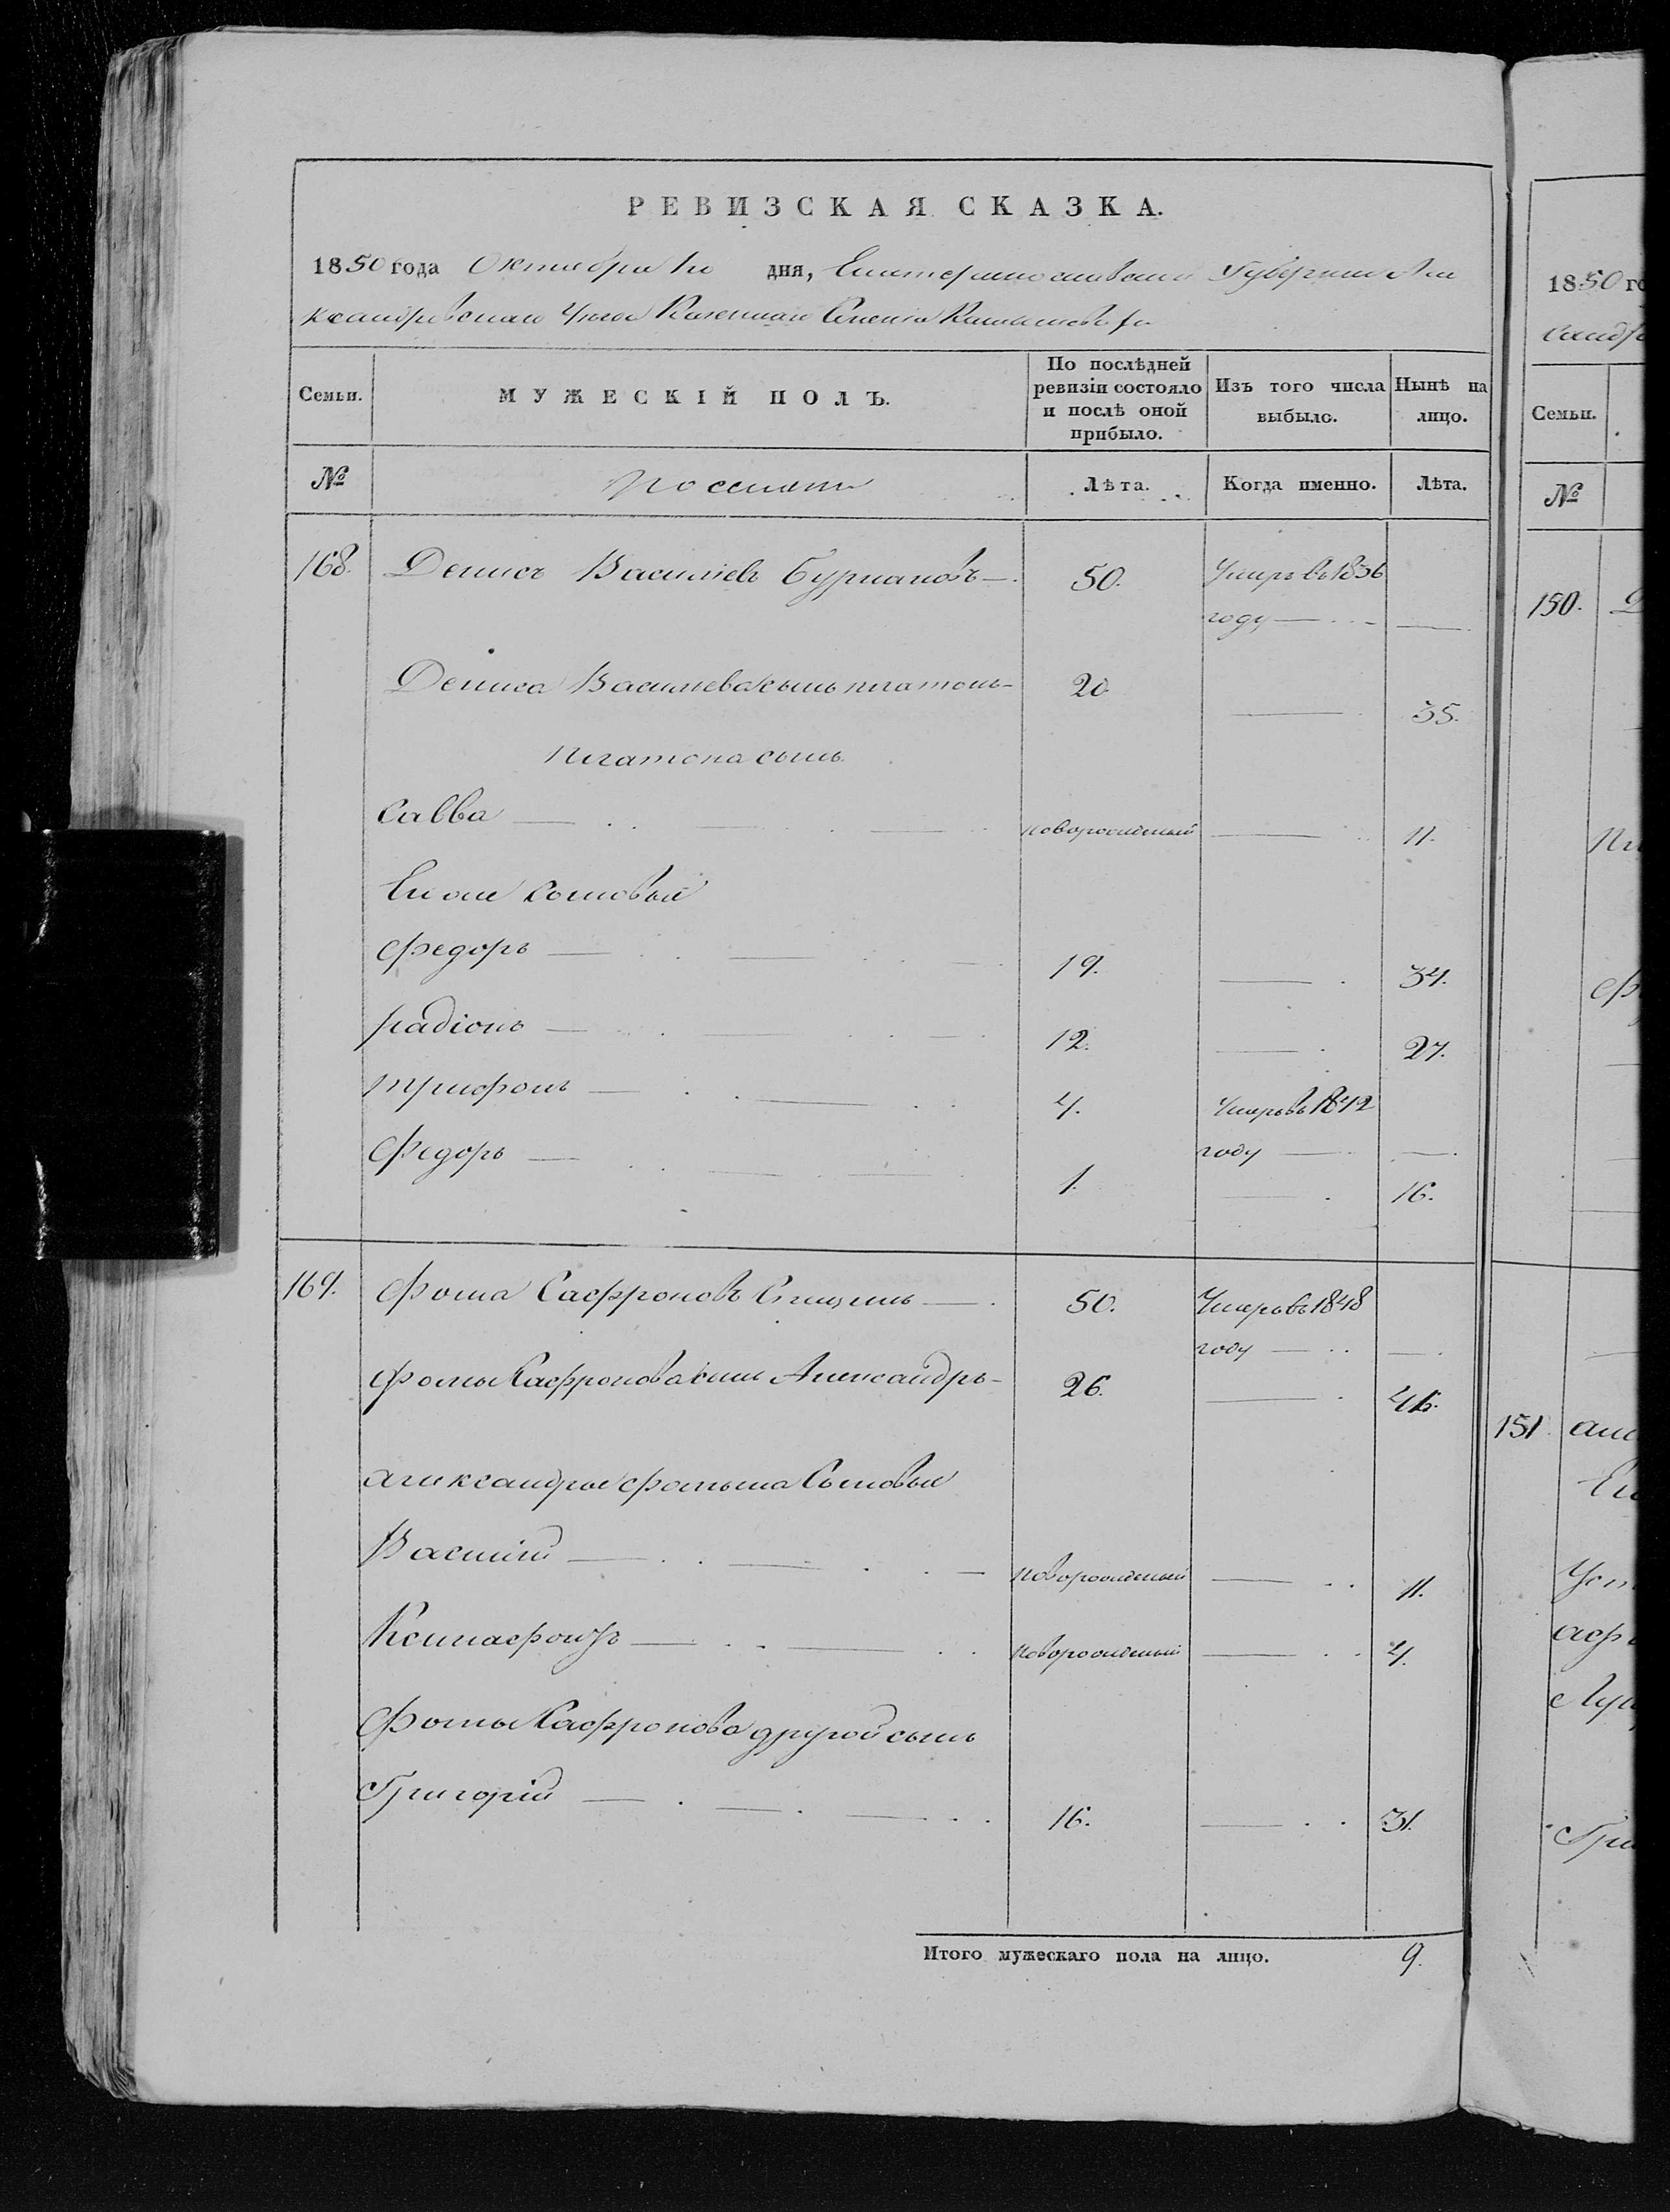 РЕВИЗСКАЯ СКАЗКА.
1850 года Октября дня, Екатеринославской Губернии Але
ксандровскаго Уезда Казеннаго Селенія
Семьи.
МУЖЕСКІЙ ПОЛЪ.
По послѣдней ревизіи состояло и послѣ оной прибыло.
Изъ того числа выбыло.
Нынѣ на лицо.
№
Лѣта.
Когда именно.
Лѣта.
168. Денисъ Василіевъ Бурлаковъ 50. Умеръ въ 1836
году
Дениса Василіева сынъ платонъ 20. 35.
платона сынъ
Савва новорожденый 11.
Его же сыновья
Федоръ 19. 34.
радіонъ 12. 27.
трифонъ 4. Умеръ въ 1842
году
Федоръ 1. 16.
169. Фома Сафроновъ 50. Умеръ въ 1848
году
Фомы Сафронова сынъ Александръ 26. 41.
александра Фомина Сыновья
Василій новорожденый 11.
Ксенафонтъ новорожденый 4.
Фомы Сафронова другой сынъ
Григорій 16. 31.
Итого мужескаго пола на лицо. 9.
1850 го
Семьи.
№
150.
151